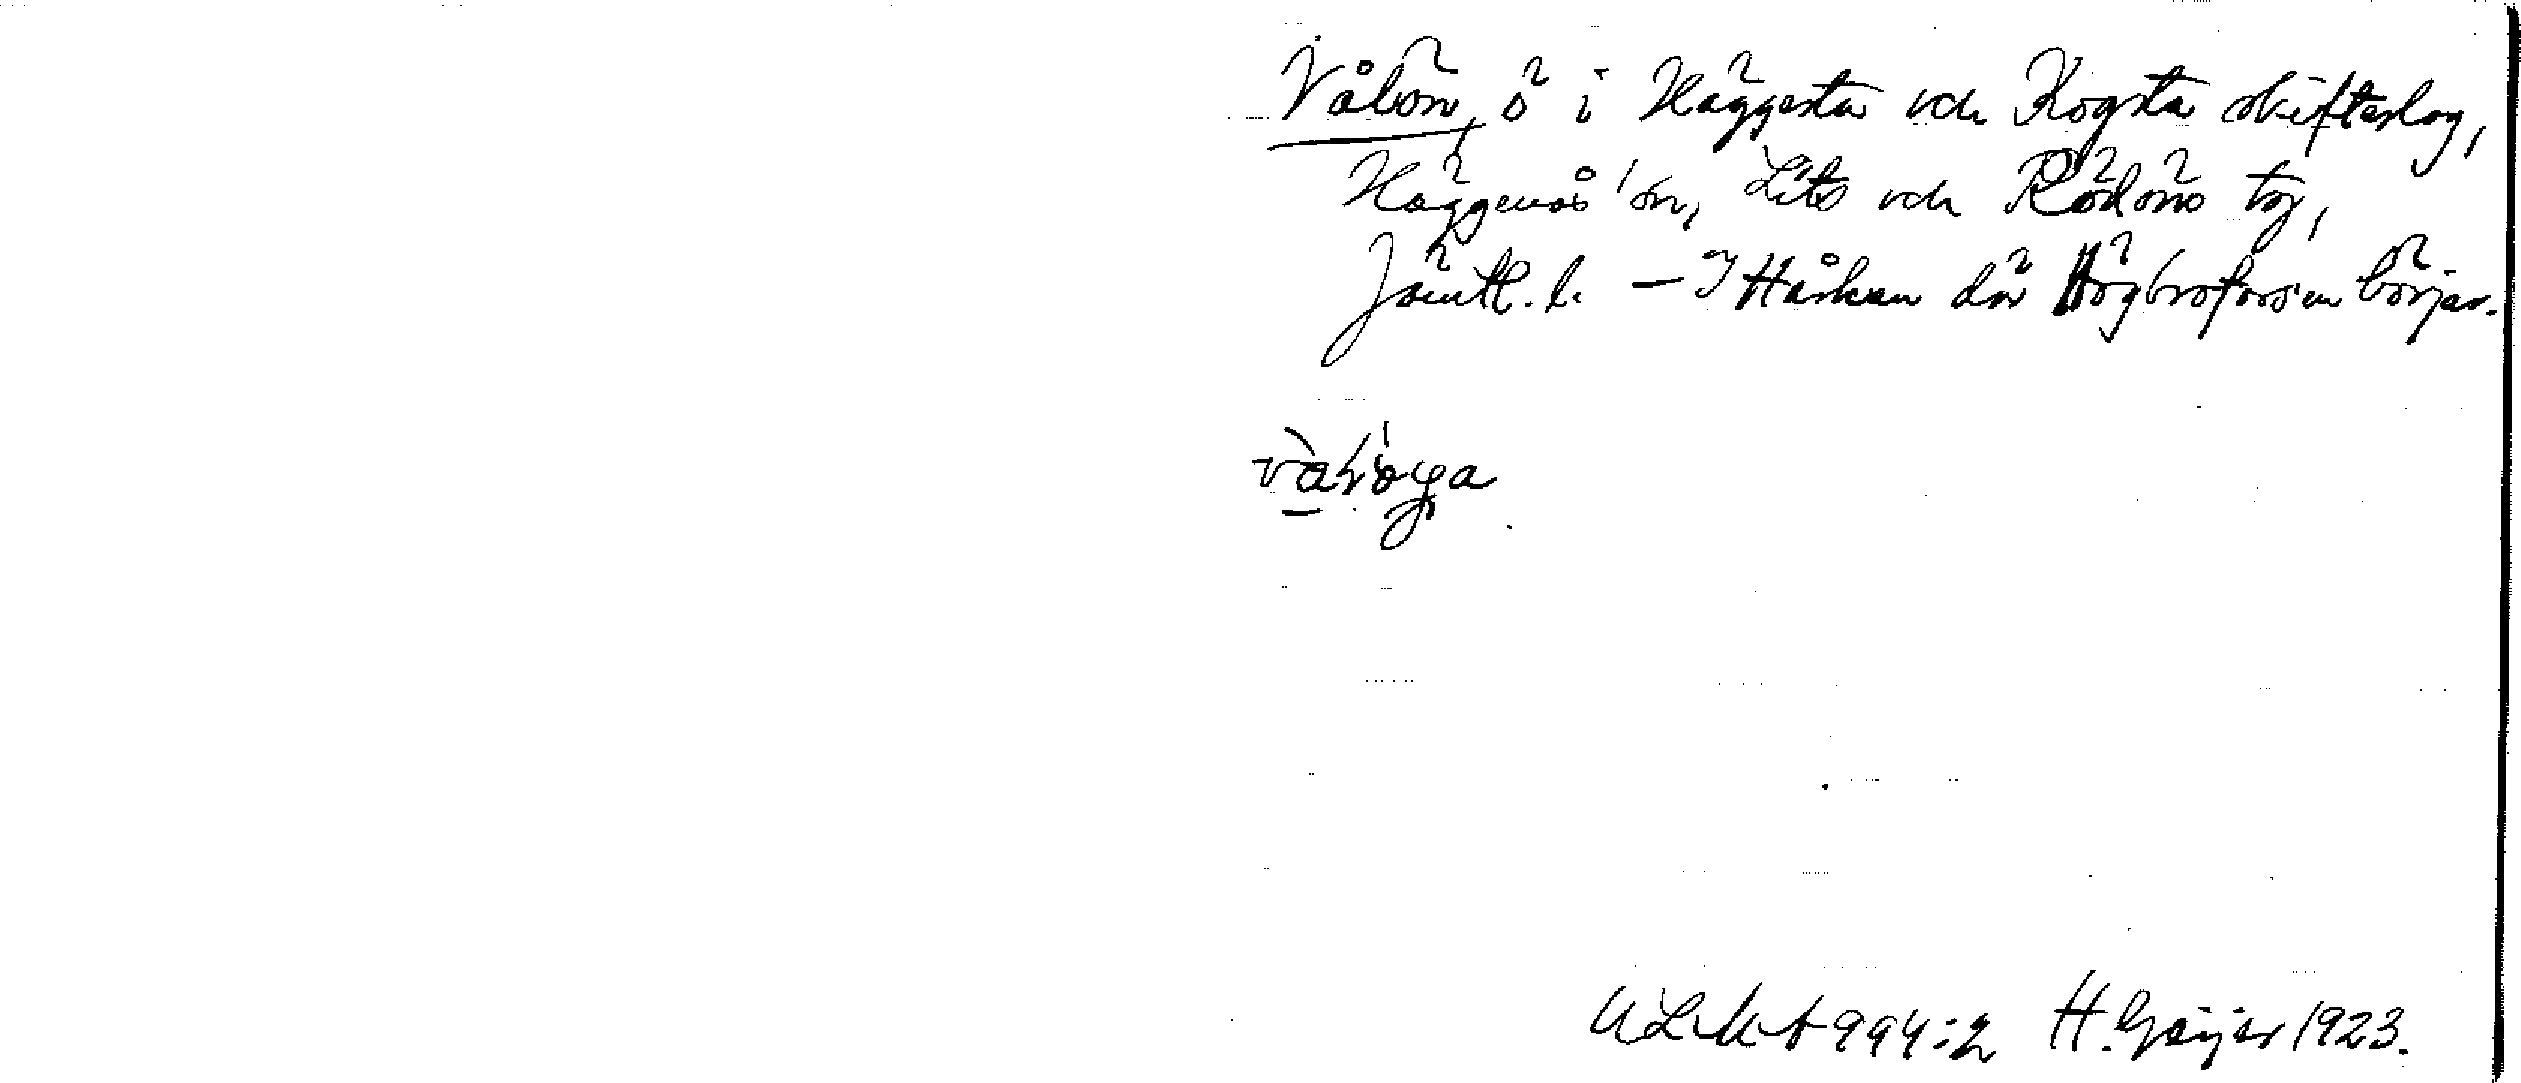 Vålön, ö i Häggesta och Kogsta skifteslag,
Häggenås sn, Lits och Rödöns tg,
Jämtl. l. – I Hårkan där Högbroforsen börjar.
H. Geijer 1923.